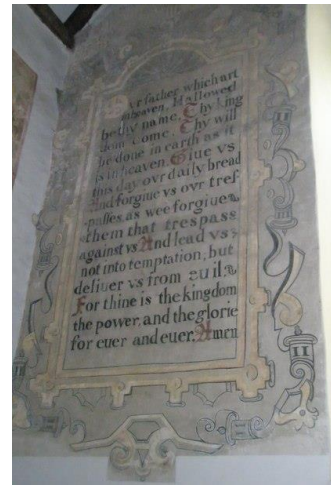 Ovr father which art
in heaven, Hallowed
be thy name. Thy king
dom come. Thy will
be done in earth as it
is in heaven. Giue vs
this day ovr daily bread
And forgiue vs ovr tres
passes, as wee forgiue
them that trespass
against vs. And lead vs
not into temptation, but
deliuer vs from euil:
For thine is the kingdom
the power, and the glorie
for euer and euer. Amen